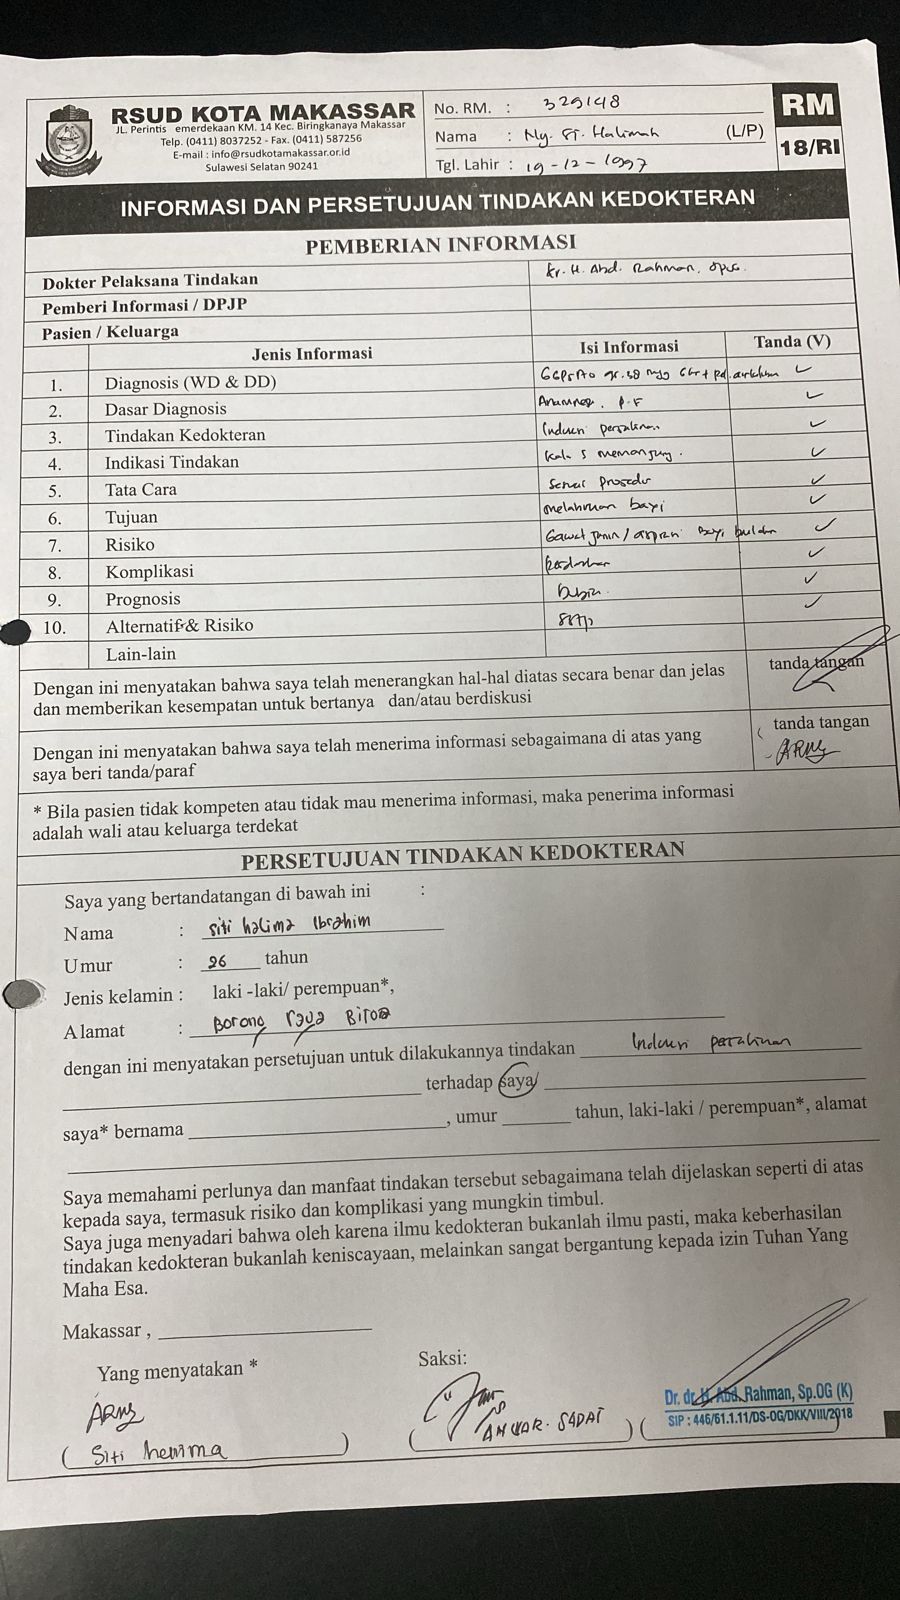 RSUD KOTA MAKASSAR
JL. Perintis emerdekaan KM. 14 Kec. Biringkanaya Makassar
Telp. (0411) 8037252 - Fax. (0411) 587256
E-mail : info@rsudkotamakassar.or.id
Sulawesi Selatan 90241
No. RM. : 329148
Nama : Ny. St. Halimah (L/P)
Tgl. Lahir : 19-12-1997
RM
18/RI
INFORMASI DAN PERSETUJUAN TINDAKAN KEDOKTERAN
PEMBERIAN INFORMASI
Dokter Pelaksana Tindakan H. Abd. Rahman,
Pemberi Informasi / DPJP
Pasien / Keluarga
Jenis Informasi Isi Informasi Tanda (V)
1. Diagnosis (WD & DD) ✓
2. Dasar Diagnosis P.F ✓
3. Tindakan Kedokteran Induksi persalinan ✓
4. Indikasi Tindakan memanjang. ✓
5. Tata Cara Sesuai prosedur ✓
6. Tujuan melahirkan bayi ✓
7. Risiko Gawat janin / ✓
8. Komplikasi ✓
9. Prognosis ✓
10. Alternatif & Risiko ✓
Lain-lain
Dengan ini menyatakan bahwa saya telah menerangkan hal-hal diatas secara benar dan jelas
dan memberikan kesempatan untuk bertanya dan/atau berdiskusi
tanda tangan
Dengan ini menyatakan bahwa saya telah menerima informasi sebagaimana di atas yang
saya beri tanda/paraf
tanda tangan
* Bila pasien tidak kompeten atau tidak mau menerima informasi, maka penerima informasi
adalah wali atau keluarga terdekat
PERSETUJUAN TINDAKAN KEDOKTERAN
Saya yang bertandatangan di bawah ini :
Nama : siti halima Ibrahim
Umur : 26 tahun
Jenis kelamin : laki -laki/ perempuan*,
Alamat : Borong raya
dengan ini menyatakan persetujuan untuk dilakukannya tindakan Induksi persalinan
terhadap saya/
saya* bernama , umur tahun, laki-laki / perempuan*, alamat
Saya memahami perlunya dan manfaat tindakan tersebut sebagaimana telah dijelaskan seperti di atas
kepada saya, termasuk risiko dan komplikasi yang mungkin timbul.
Saya juga menyadari bahwa oleh karena ilmu kedokteran bukanlah ilmu pasti, maka keberhasilan
tindakan kedokteran bukanlah keniscayaan, melainkan sangat bergantung kepada izin Tuhan Yang
Maha Esa.
Makassar ,
Yang menyatakan * Saksi:
Dr. dr. H. Abd. Rahman, Sp.OG (K)
SIP : 446/61.1.11/DS-OG/DKK/VIII/2018
( Siti ) ( ANWAR. SADAT ) ( )